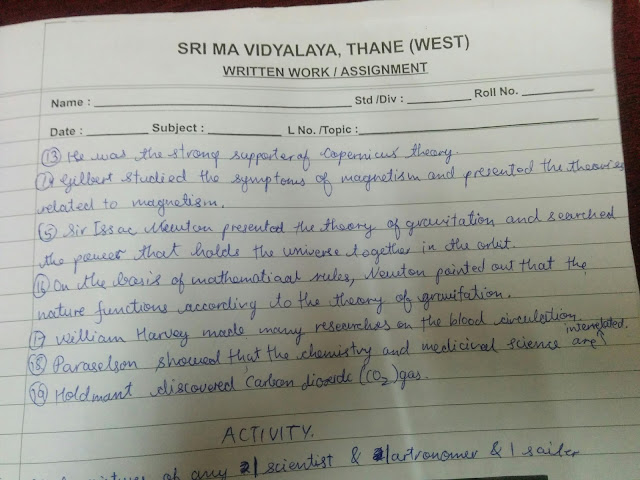 SRI MA VIDYALAYA, THANE (WEST)
WRITTEN WORK / ASSIGNMENT
Name : Std /Div : Roll No.
Date : Subject : L No. /Topic :
(13) He was the strong supporter of Copernicus theory.
(14) Gilbert studied the symptoms of magnetism and presented the theories
related to magnetism.
(15) Sir Issac Newton presented the theory of gravitation and searched
the power that holds the universe together in the orbit.
(16) On the basis of mathematical rules, Newton pointed out that the
nature functions according to the theory of gravitation.
(17) William Harvey made many researches on the blood circulation.
(18) Paraselson showed that the chemistry and medicival science are interrelated.
(19) Holdmant discovered Carbon dioxide (CO₂) gas.
ACTIVITY.
pictures of any 1 scientist & 1 artronomer & 1 sailer